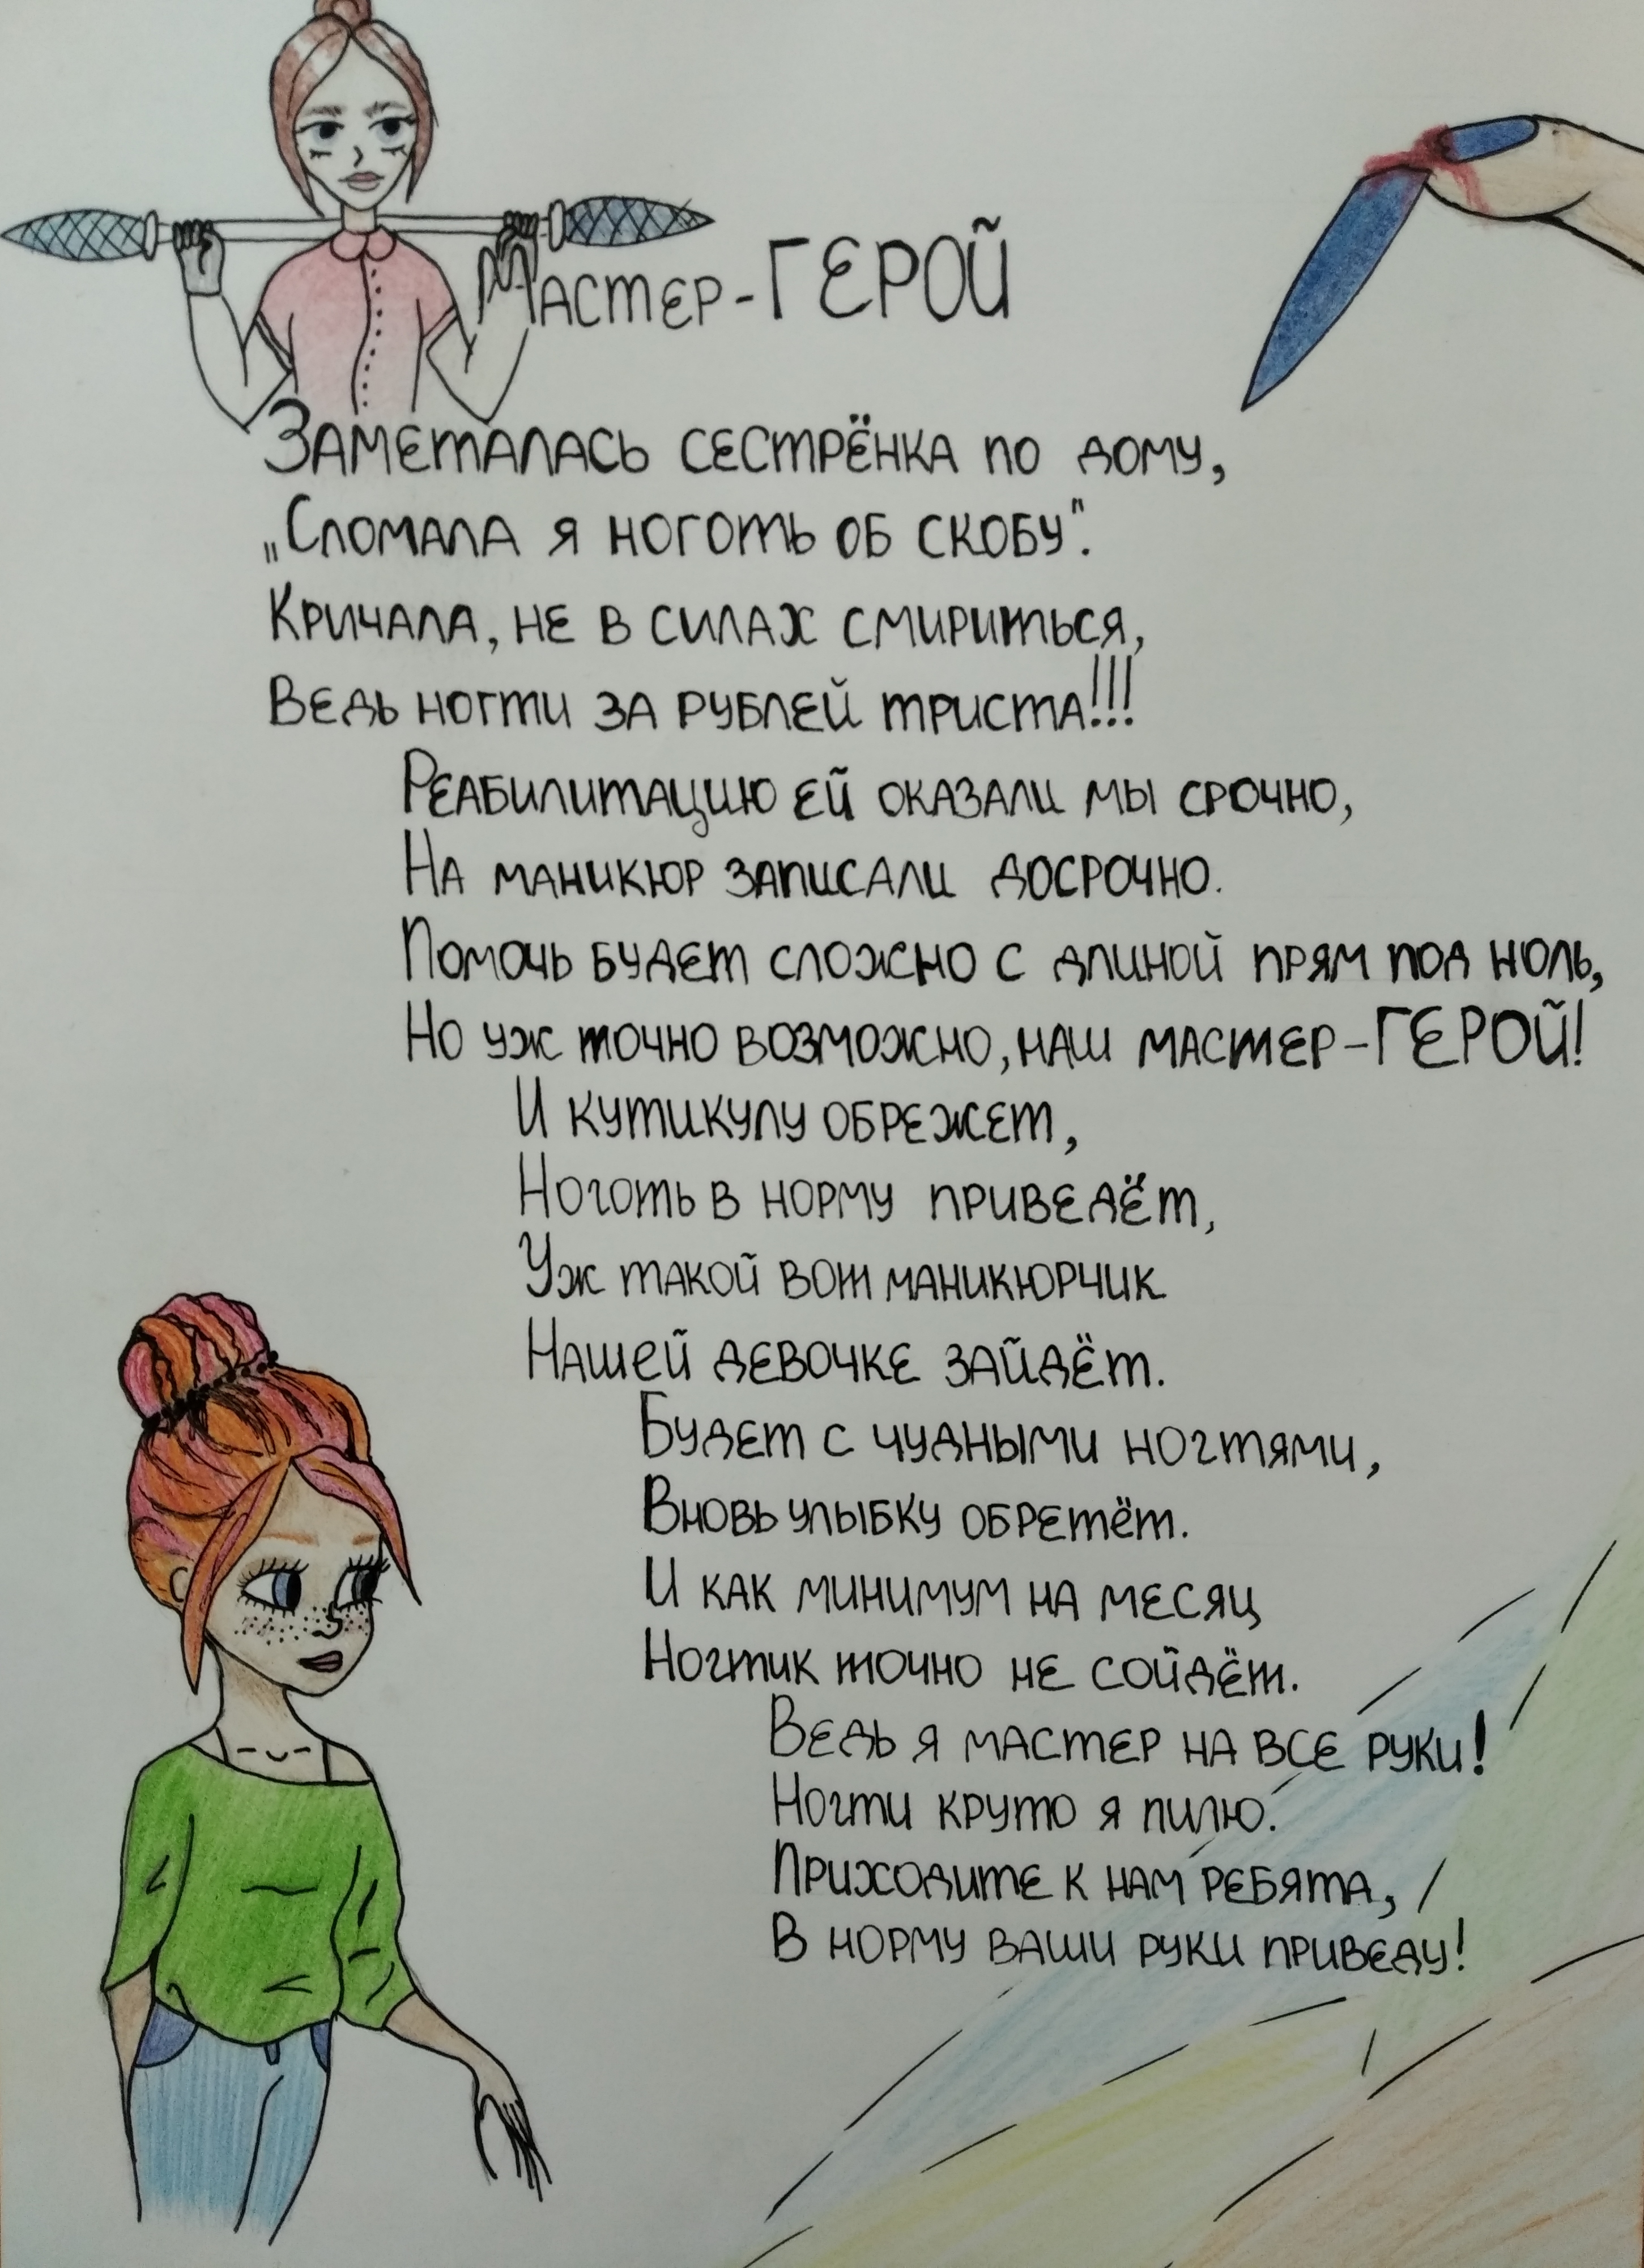 Мастер-ГЕРОЙ
Заметалась сестрёнка по дому,
„Сломала я ноготь об скобу".
Кричала, не в силах смириться,
Ведь ногти за рублей триста!!!
Реабилитацию ей оказали мы срочно,
На маникюр записали досрочно.
Помочь будет сложно с длиной прям под ноль,
Но уж точно возможно, наш мастер-ГЕРОЙ!
И кутикулу обрежет,
Ноготь в норму приведёт,
Уж такой вот маникюрчик
Нашей девочке зайдёт.
Будет с чудными ногтями,
Вновь улыбку обретёт.
И как минимум на месяц
Ногтик точно не сойдёт.
Ведь я мастер на все руки!
Ногти круто я пилю.
Приходите к нам ребята,
В норму ваши руки приведу!